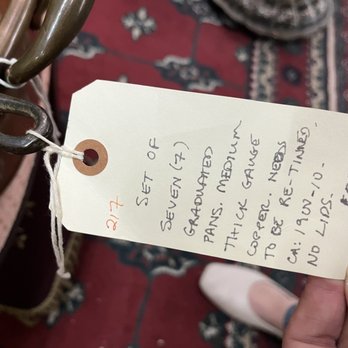 217
SET OF
SEVEN (7)
GRADUATED
PANS. MEDIUM
THICK GAUGE
COPPER. NEEDS
TO BE RE-TINNED.
CA: 1900-10-
NO LIDS.